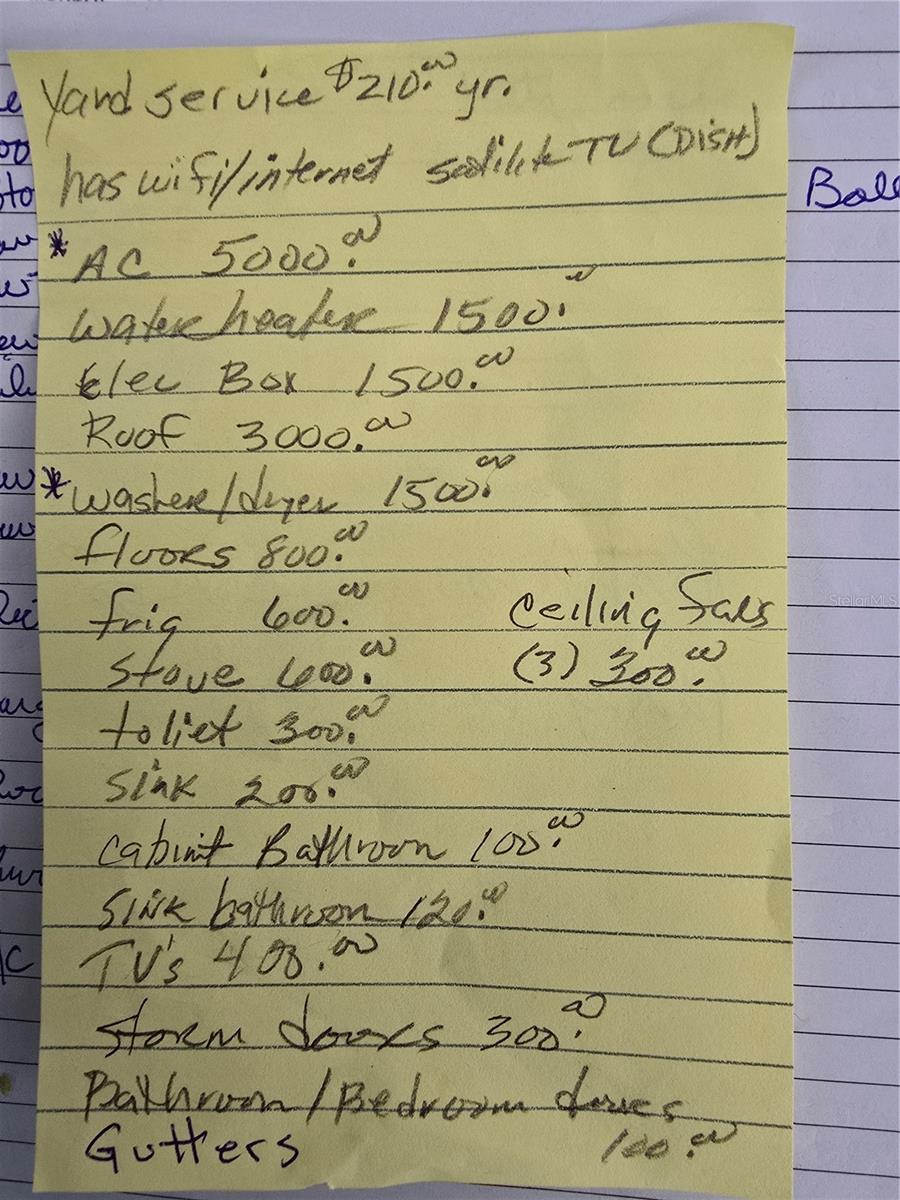 Yard service $210.00 yr.
has wifi/internet satilite TV (DISH)
Ball
* AC 5000.00
water heater 1500.00
Elec Box 1500.00
Roof 3000.00
* washer/dryer 1500.00
floors 800.00
frig 600.00 Ceiling fans
StellarMLS
Stove 600.00 (3) 300.00
toliet 300.00
Sink 200.00
cabint Bathroom 100.00
Sink bathroom 120.00
TV's 400.00
Storm doors 300.00
Bathroom/Bedroom doors
Gutters 100.00